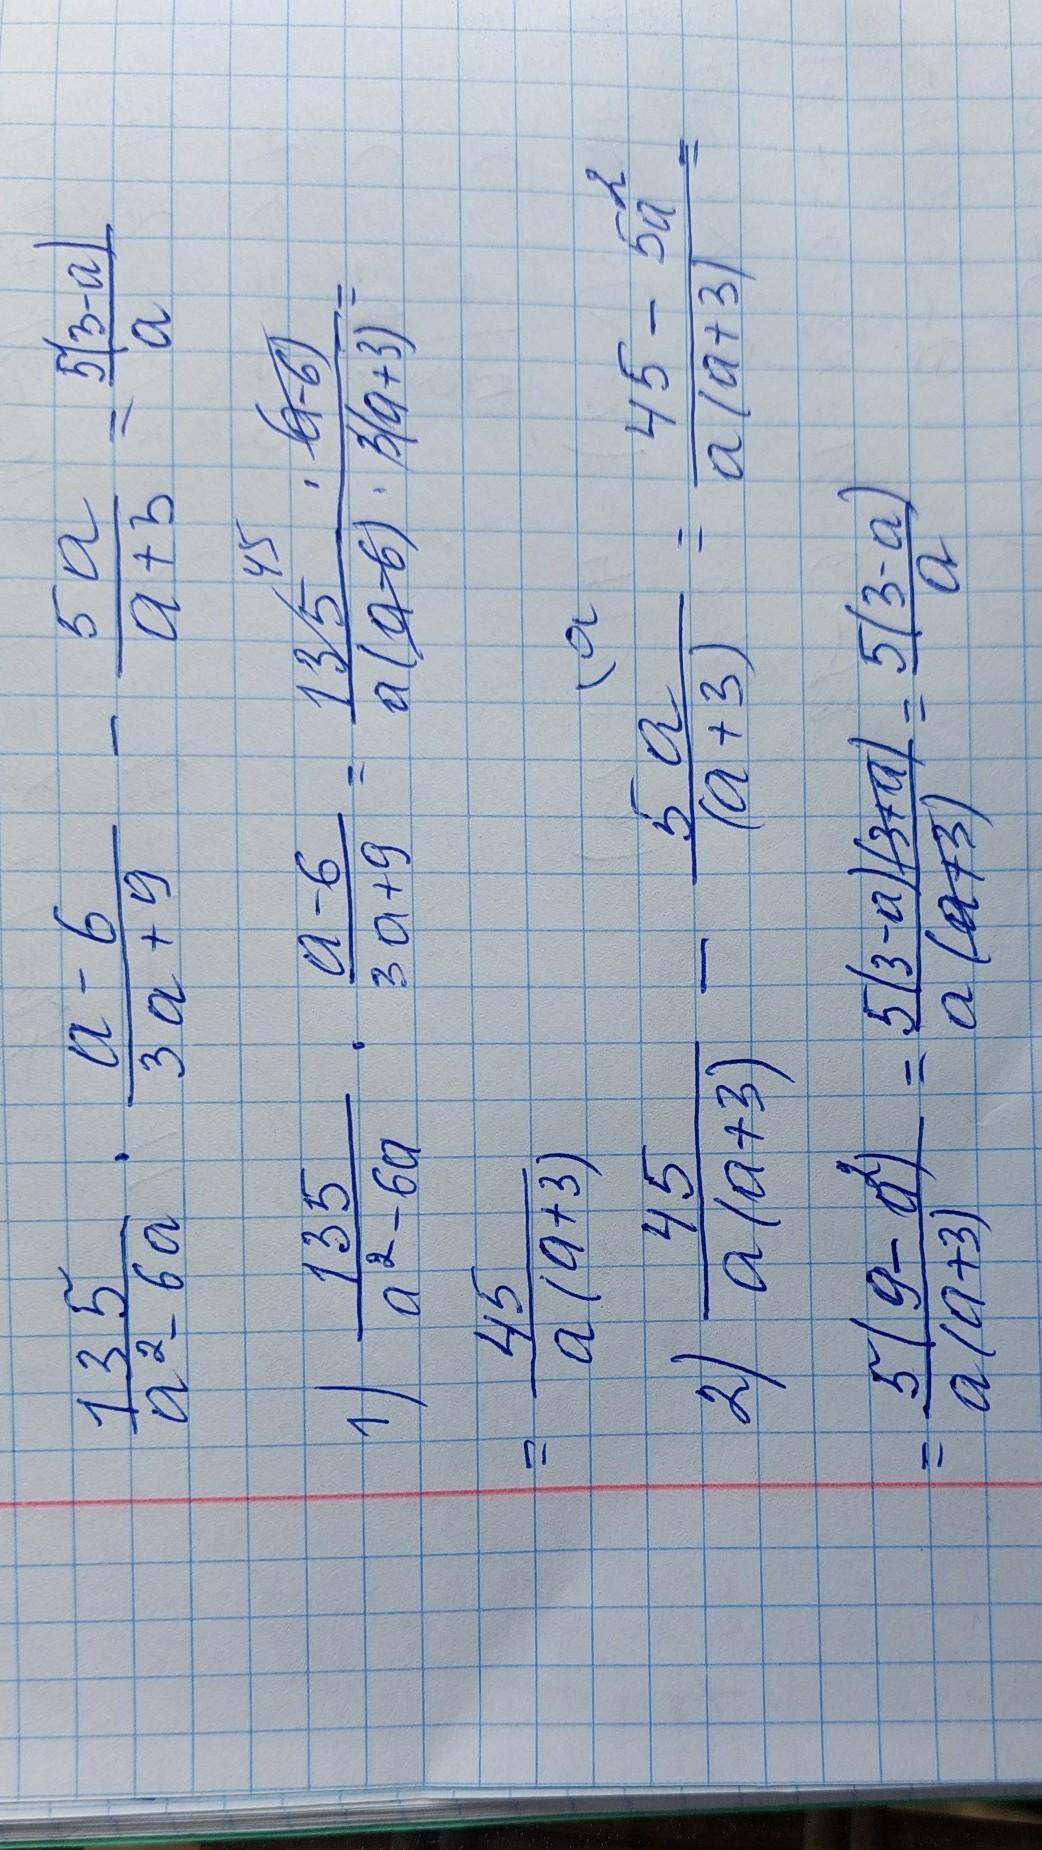 135/(a²-6a) · (a-6)/(3a+9) - 5a/(a+3) = 5(3-a)/a
1) 135/(a²-6a) · (a-6)/(3a+9) = 135 45 · (a-6)/(a(a-6) · 3(a+3)) =
= 45/(a(a+3))
(a
2) 45/(a(a+3)) - 5a/(a+3) = (45-5a²)/(a(a+3)) =
= 5(9-a²)/(a(a+3)) = 5(3-a)(3+a)/(a(a+3)) = 5(3-a)/a